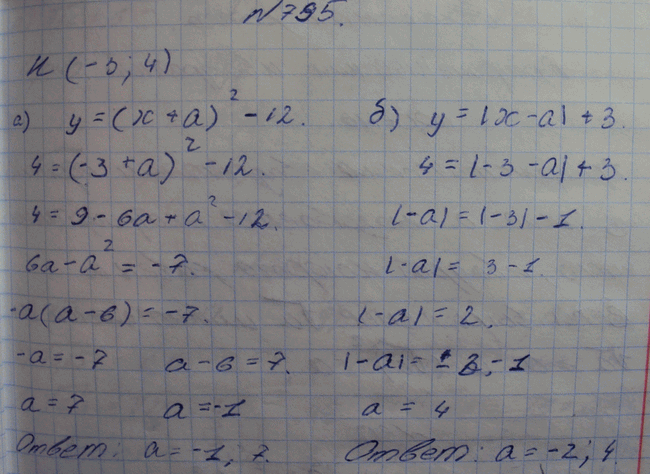 №795.
К (-3; 4)
а) y = (x + a)² - 12.
4 = (-3 + a)² - 12.
4 = 9 - 6a + a² - 12.
6a - a² = -7.
-a(a - 6) = -7.
-a = -7 a - 6 = 7.
a = 7 a = -1
Ответ: a = -1; 7.
б) y = |x - a| + 3.
4 = |-3 - a| + 3.
|-a| = |-3| - 1.
|-a| = 3 - 1.
|-a| = 2.
a = 4
Ответ: a = -2; 4.